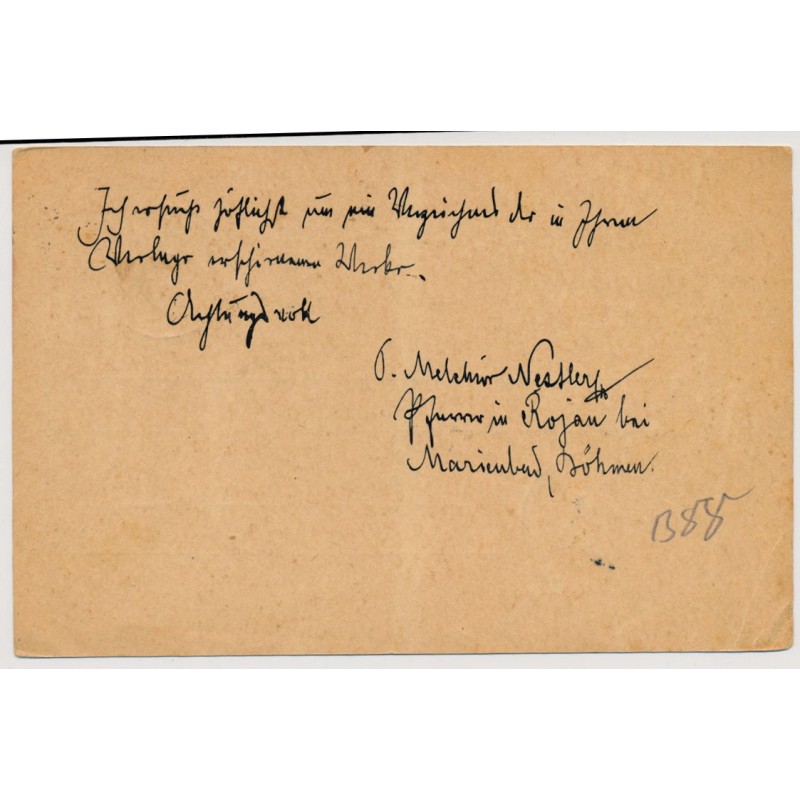 Ich ersuche höflichst um ein Verzeichnis der in Ihrem
Verlage erschienenen Werke.
Achtungsvoll
P. Melchior Nestler
Pfarrer in Rojau bei
Marienbad, Böhmen.
B88